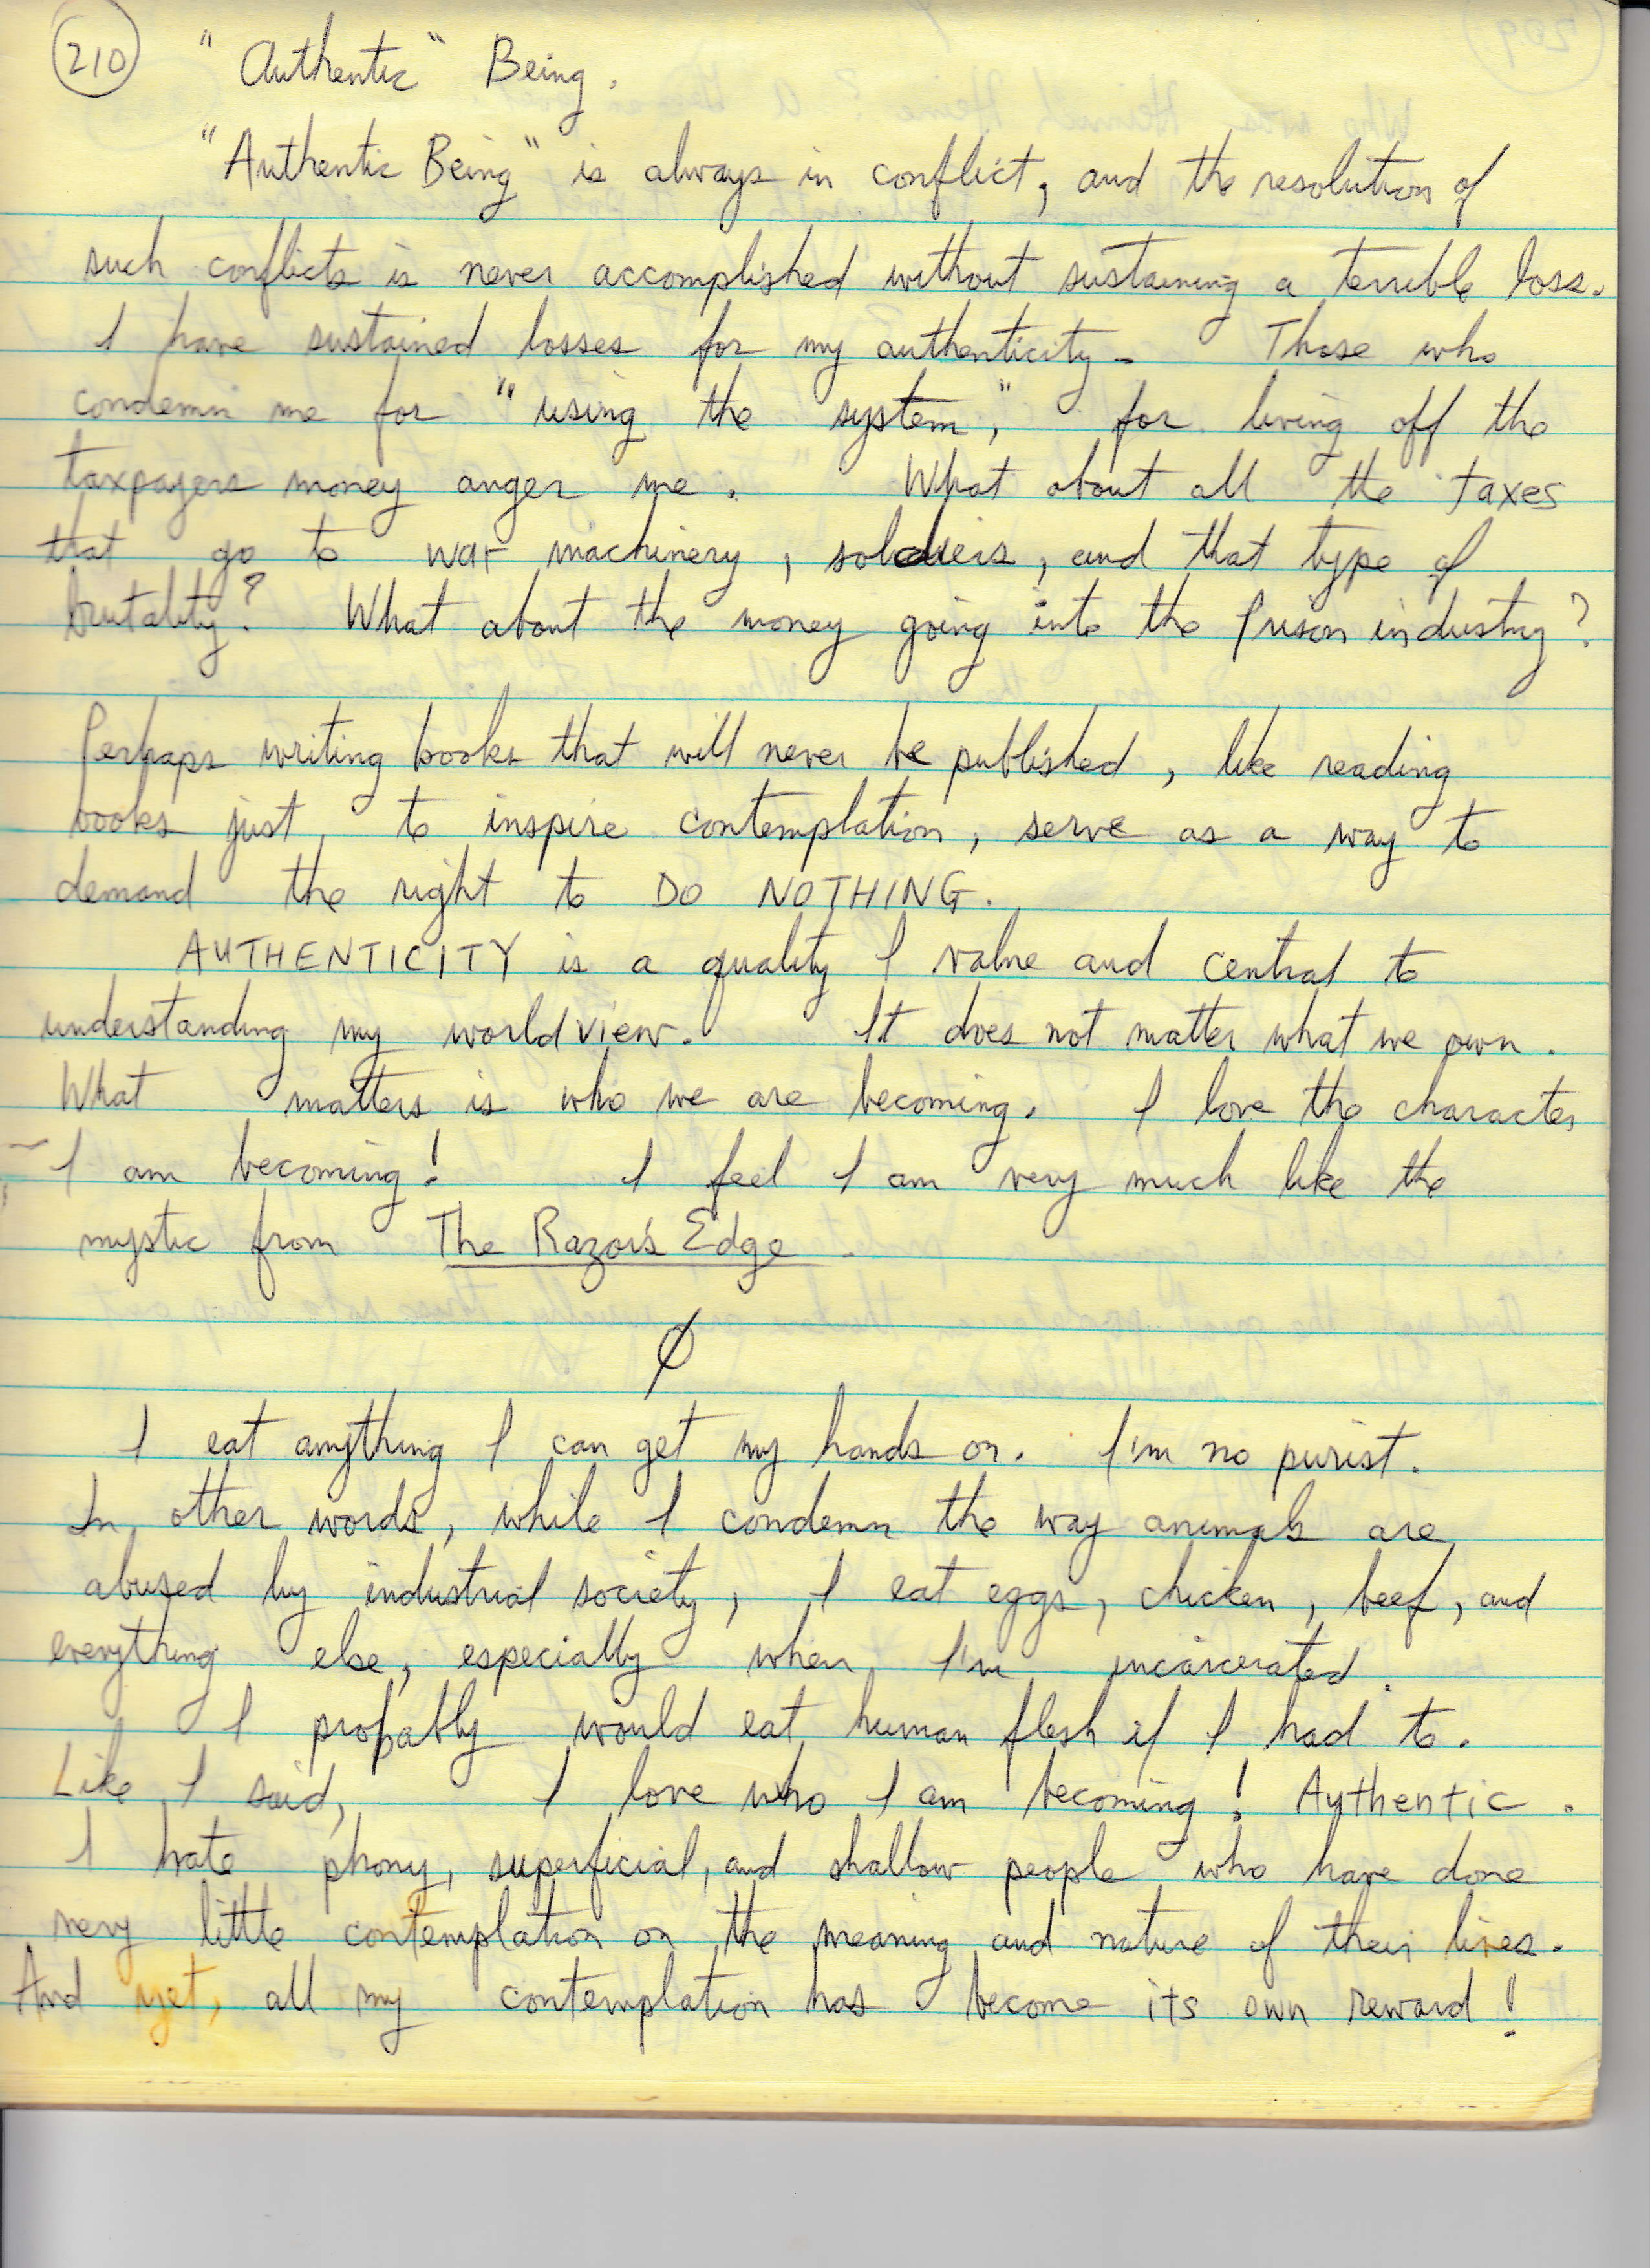 210
"Authentic" Being.
"Authentic Being" is always in conflict, and the resolution of
such conflicts is never accomplished without sustaining a terrible loss.
I have sustained losses for my authenticity. Those who
condemn me for "using the system," for living off the
taxpayers money anger me. What about all the taxes
that go to war machinery, soldiers, and that type of
brutality? What about the money going into the prison industry?
Perhaps writing books that will never be published, like reading
books just to inspire contemplation, serve as a way to
demand the right to DO NOTHING.
AUTHENTICITY is a quality I value and central to
understanding my worldview. It does not matter what we own.
What matters is who we are becoming. I love the character
I am becoming! I feel I am very much like the
mystic from The Razor's Edge.
Ø
I eat anything I can get my hands on. I'm no purist.
In other words, while I condemn the way animals are
abused by industrial society, I eat eggs, chicken, beef, and
everything else, especially when I'm incarcerated.
I probably would eat human flesh if I had to.
Like I said, I love who I am becoming! Authentic.
I hate phony, superficial, and shallow people who have done
very little contemplation on the meaning and nature of their lives.
And yet, all my contemplation has become its own reward!